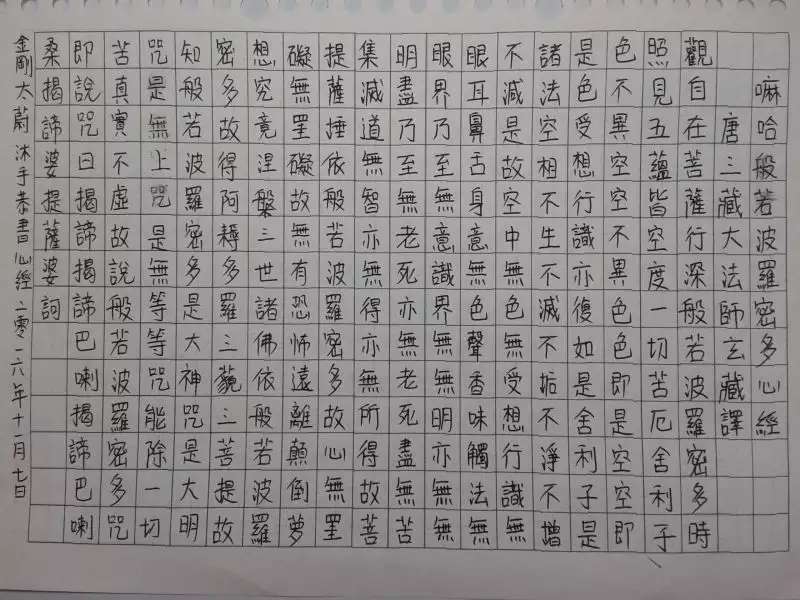 嘛哈般若波羅密多心經
唐三藏大法師玄藏譯
觀自在菩薩行深般若波羅密多時
照見五蘊皆空度一切苦厄舍利子
色不異空空不異色色即是空空即
是色受想行識亦復如是舍利子是
諸法空相不生不滅不垢不淨不增
不減是故空中無色無受想行識無
眼耳鼻舌身意無色聲香味觸法無
眼界乃至無意識界無無明亦無無
明盡乃至無老死亦無老死盡無苦
集滅道無智亦無得亦無所得故菩
提薩捶依般若波羅密多故心無罣
礙無罣礙故無有恐怖遠離顛倒夢
想究竟涅槃三世諸佛依般若波羅
密多故得阿耨多羅三藐三菩提故
知般若波羅密多是大神咒是大明
咒是無上咒是無等等咒能除一切
苦真實不虛故說般若波羅密多咒
即說咒曰揭諦揭諦巴喇揭諦巴喇
桑揭諦婆提薩婆訶
金剛太蔚沐手恭書心經二零一六年十一月七日